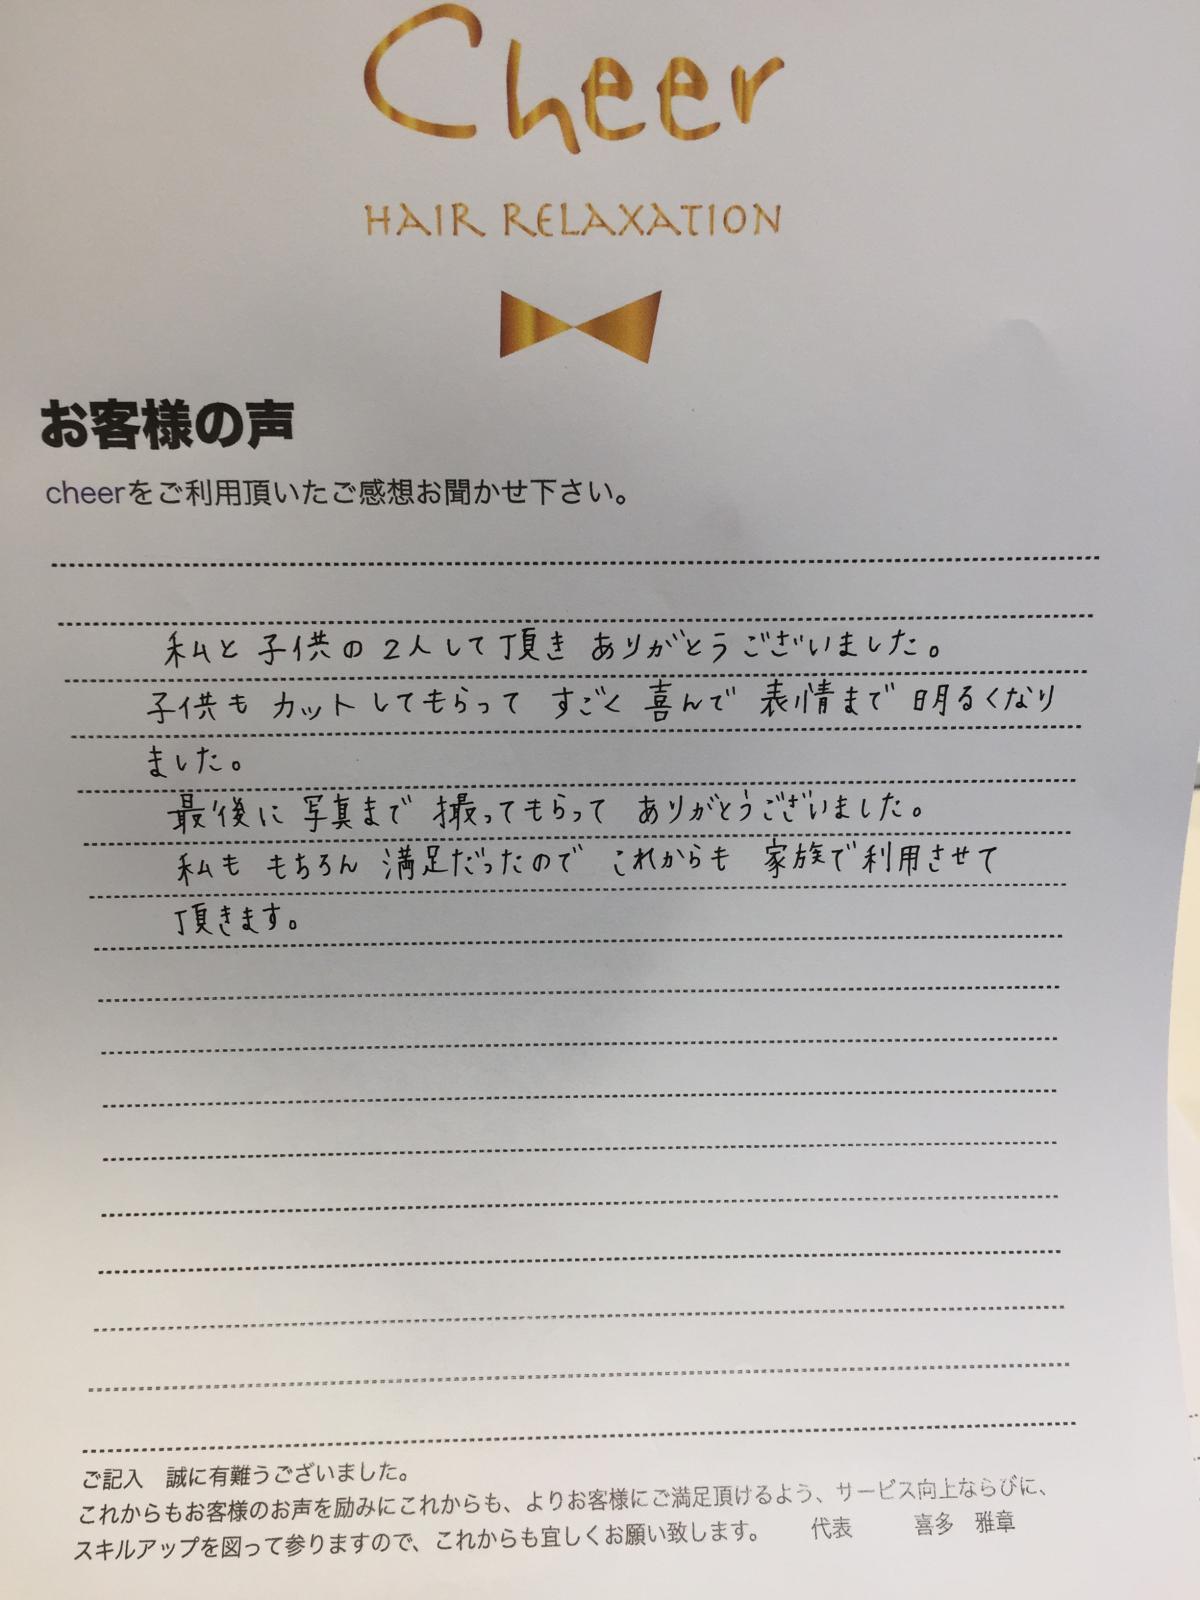 Cheer
HAIR RELAXATION
お客様の声
cheerをご利用頂いたご感想お聞かせ下さい。
私と子供の2人して頂きありがとうございました。
子供もカットしてもらってすごく喜んで表情まで明るくなり
ました。
最後に写真まで撮ってもらってありがとうございました。
私ももちろん満足だったのでこれからも家族で利用させて
頂きます。
ご記入　誠に有難うございました。
これからもお客様のお声を励みにこれからも、よりお客様にご満足頂けるよう、サービス向上ならびに、
スキルアップを図って参りますので、これからも宜しくお願い致します。　代表　喜多　雅章